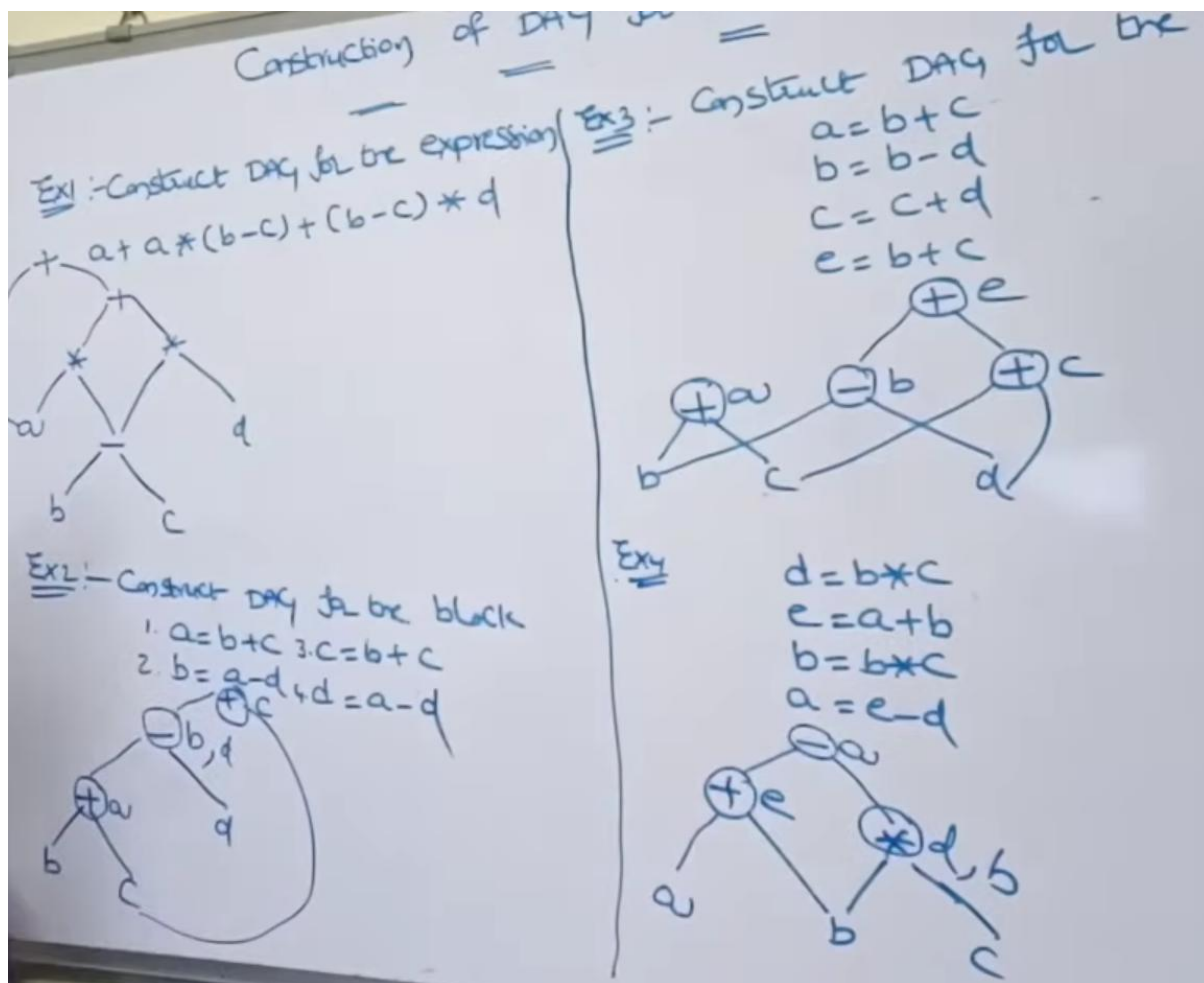 Construction of DAG for
Ex1 :- Construct DAG for the expression
a + a * (b-c) + (b-c) * d
+
+
* *
a d
-
b c
Ex2 :- Construct DAG for the block
1. a = b + c 3. c = b + c
2. b = a - d 4. d = a - d
+ c
- b, d
+ a
d
b
c
Ex3 :- Construct DAG for the
a = b + c
b = b - d
c = c + d
e = b + c
+ e
+ a - b + c
b c d
Ex4
d = b * c
e = a + b
b = b * c
a = e - d
- a
+ e
* d, b
a
b
c